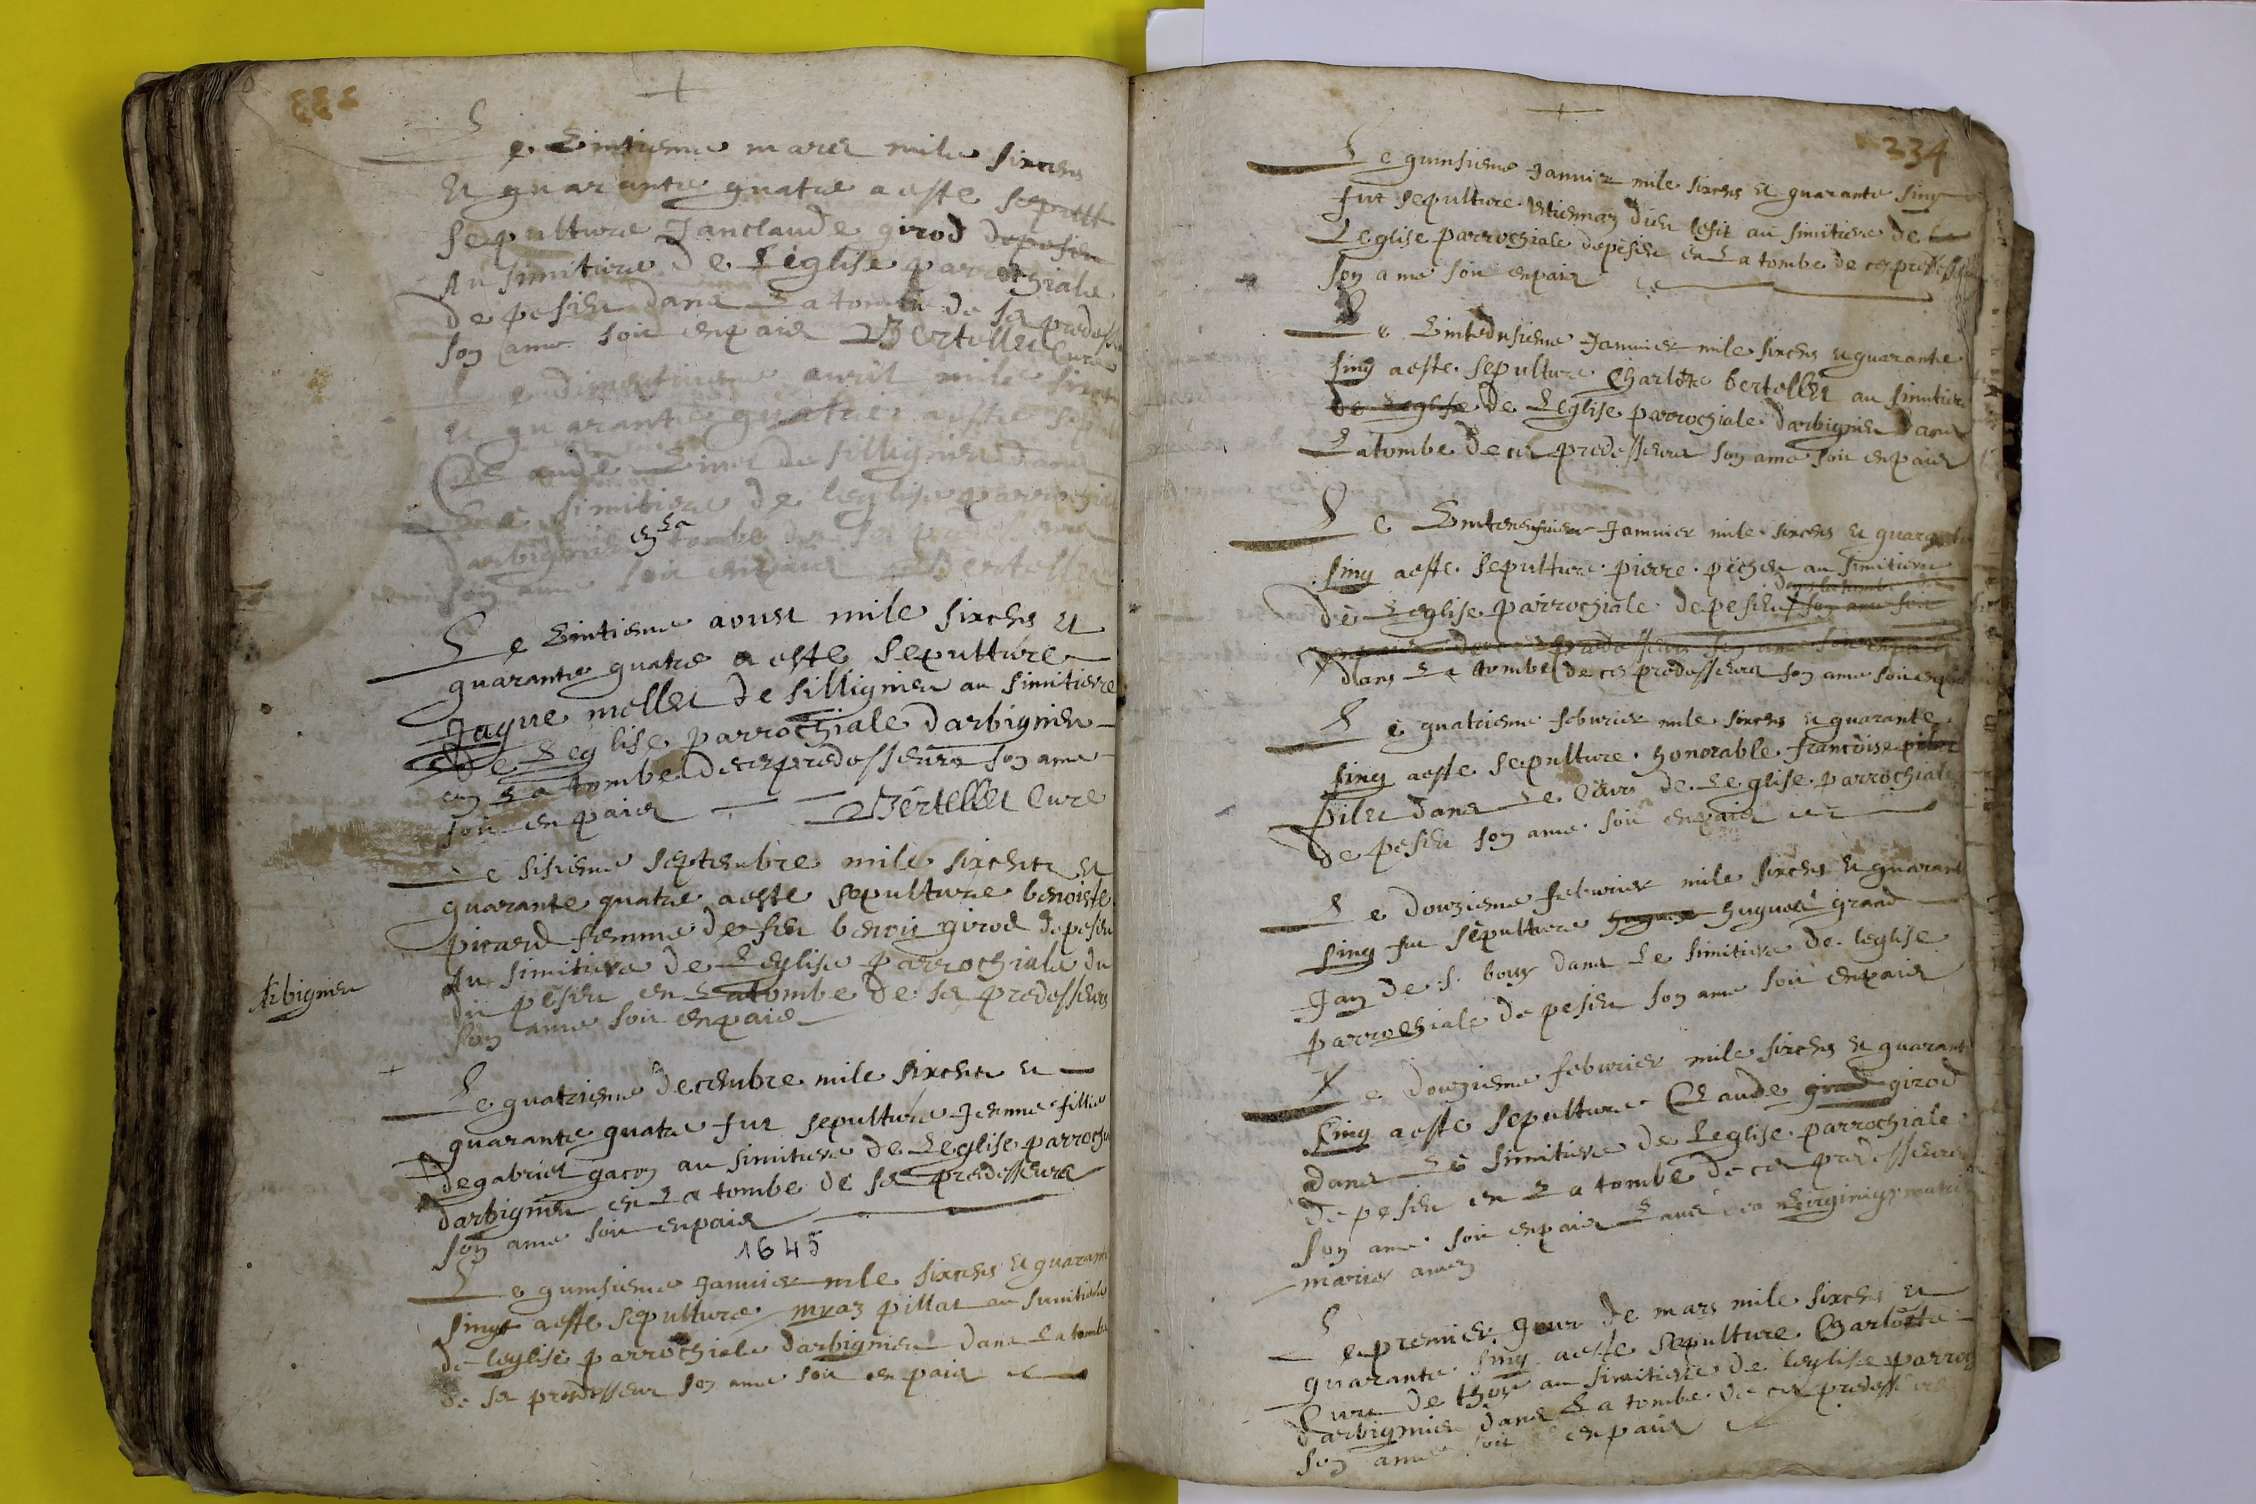 333
Le Vintieme mars mile sixcens
et quarante quatre a este sepult
sepulture Janclaude girod depesieu
Au simitiere de L'eglise parrochiale
de pesieu dans La tombe de ses predess
son ame soit en paix Bertellet Cure
Le avril mile sixcens
et quarante quatre a este sep
Claude Vinet de sillignieu dans
Le simitiere de leglise parrochial
darbignieu en La tombe de ses
son ame soit en paix Bertellet
Le Vintieme aoust mile sixcens et
quarante quatre a este sepulture
Jaque mollet de sillignieu au simitiere
de Leglise parrochiale darbignieu
en La tombe de ces predesseurs son ame
soit en paix Bertellet Cure
Le sisieme septembre mile sixcens et
quarante quatre a este sepulture benoiste
picard femme de feu benoit girod depesieu
Au simitiere de Leglise parrochiale du
dit pesieu en La tombe de ses predesseurs
son ame soit en paix
Arbignieu
Le quatrieme decembre mile sixcens et
quarante quatre fut sepulture Jeanne fillie
de gabriel gacon au simitiere de Leglise parrochi
darbignieu en La tombe de ses predesseurs
son ame soit en paix
1645
Le quinsieme Janvier mile sixcens et quarant
sinq a este sepulture pillat au simitiere
de leglise parrochiale darbignieu dans La tombe
de ses predesseur son ame soit en paix
234
Le quinsieme Janvier mile sixcens et quarante sinq
fut sepulture dieu lefit au simitiere de la
Leglise parrochiale depesieu en La tombe de ces
son ame soit en paix
Le Vintedusieme Janvier mile sixcens et quarante
sinq a este sepulture Charlote bertellet au simitiere
de Leglise de Leglise parrochiale darbignieu dans
La tombe de ces predesseurs son ame soit en paix
Le Janvier mile sixcens et quarante
sinq a este sepulture pierre pechet au simitiere
dans la tombe de
de Leglise parrochiale de pesieu son ame soit
predesseurs son ame soit en paix
dans La tombe de ces predesseurs son ame soit en paix
Le quatrieme febvrier mile sixcens et quarante
sinq a este sepulture honorable francoise pilet
pilet dans Le Cour de Leglise parrochiale
de pesieu son ame soit en paix
Le douzieme febvrier mile sixcens et quarant
sinq fut sepulture grand
Jan de S. bouy dans Le simitiere de leglise
parrochiale de pesieu son ame soit en paix
Le douzieme febvrier mile sixcens et quarant
sinq a este sepulture Claude girod
dans Le simitiere de Leglise parrochiale
de pesieu en La tombe de ces predesseurs
son ame soit en paix Laus deo Virginique matri
marie amen
Le premier Jour de mars mile sixcens et
quarante sinq a este sepulture Charlotte
de thoy au simitiere de leglise parroc
darbignieu dans La tombe de ces predesseurs
son ame soit en paix